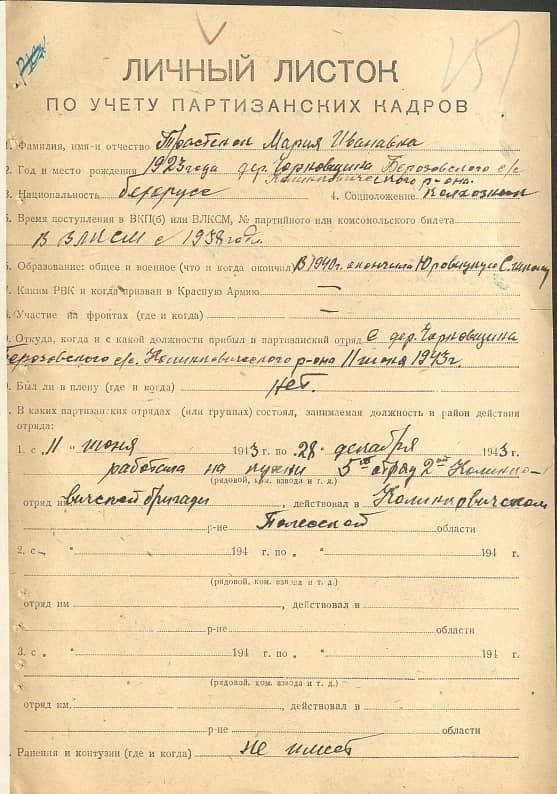 ЛИЧНЫЙ ЛИСТОК
ПО УЧЕТУ ПАРТИЗАНСКИХ КАДРОВ
Фамилия, имя и отчество Мария Ивановна
2. Год и место рождения 1923 года дер. Чорновщина Берозовского с/с
Калинковичского р-она.
3. Национальность белорусс 4. Соцположение колхозница
5. Время поступления в ВКП(б) или ВЛКСМ, № партийного или комсомольского билета
В ВЛКСМ с 1938 года.
Образование: общее и военное (что и когда окончил) В 1940г. окончила Юровичскую С. школу
Каким РВК и когда призван в Красную Армию —
Участие на фронтах (где и когда) —
Откуда, когда и с какой должности прибыл в партизанский отряд С дер. Чорновщина
Берозовского с/с. Калинковичского р-она 11 июня 1943г.
Был ли в плену (где и когда) нет.
В каких партизанских отрядах (или группах) состоял, занимаемая должность и район действия
отряда:
1. с „ 11 " июня 1943 г. по „ 28 " декабря 1943 г.
работала на кухни 5ый отряд 2ой Калинко-
(рядовой, ком. взвода и т. д.)
отряд им вичской бригады, действовал в Калинковичском
р-не Полесской области
2. с „ " 194 г. по „ " 194 г.
(рядовой, ком. взвода и т. д.)
отряд им , действовал в
р-не области
3. с „ " 194 г. по „ " 194 г.
(рядовой, ком. взвода и т. д.)
отряд им. , действовал в
р-не области
Ранения и контузии (где и когда) не имеет